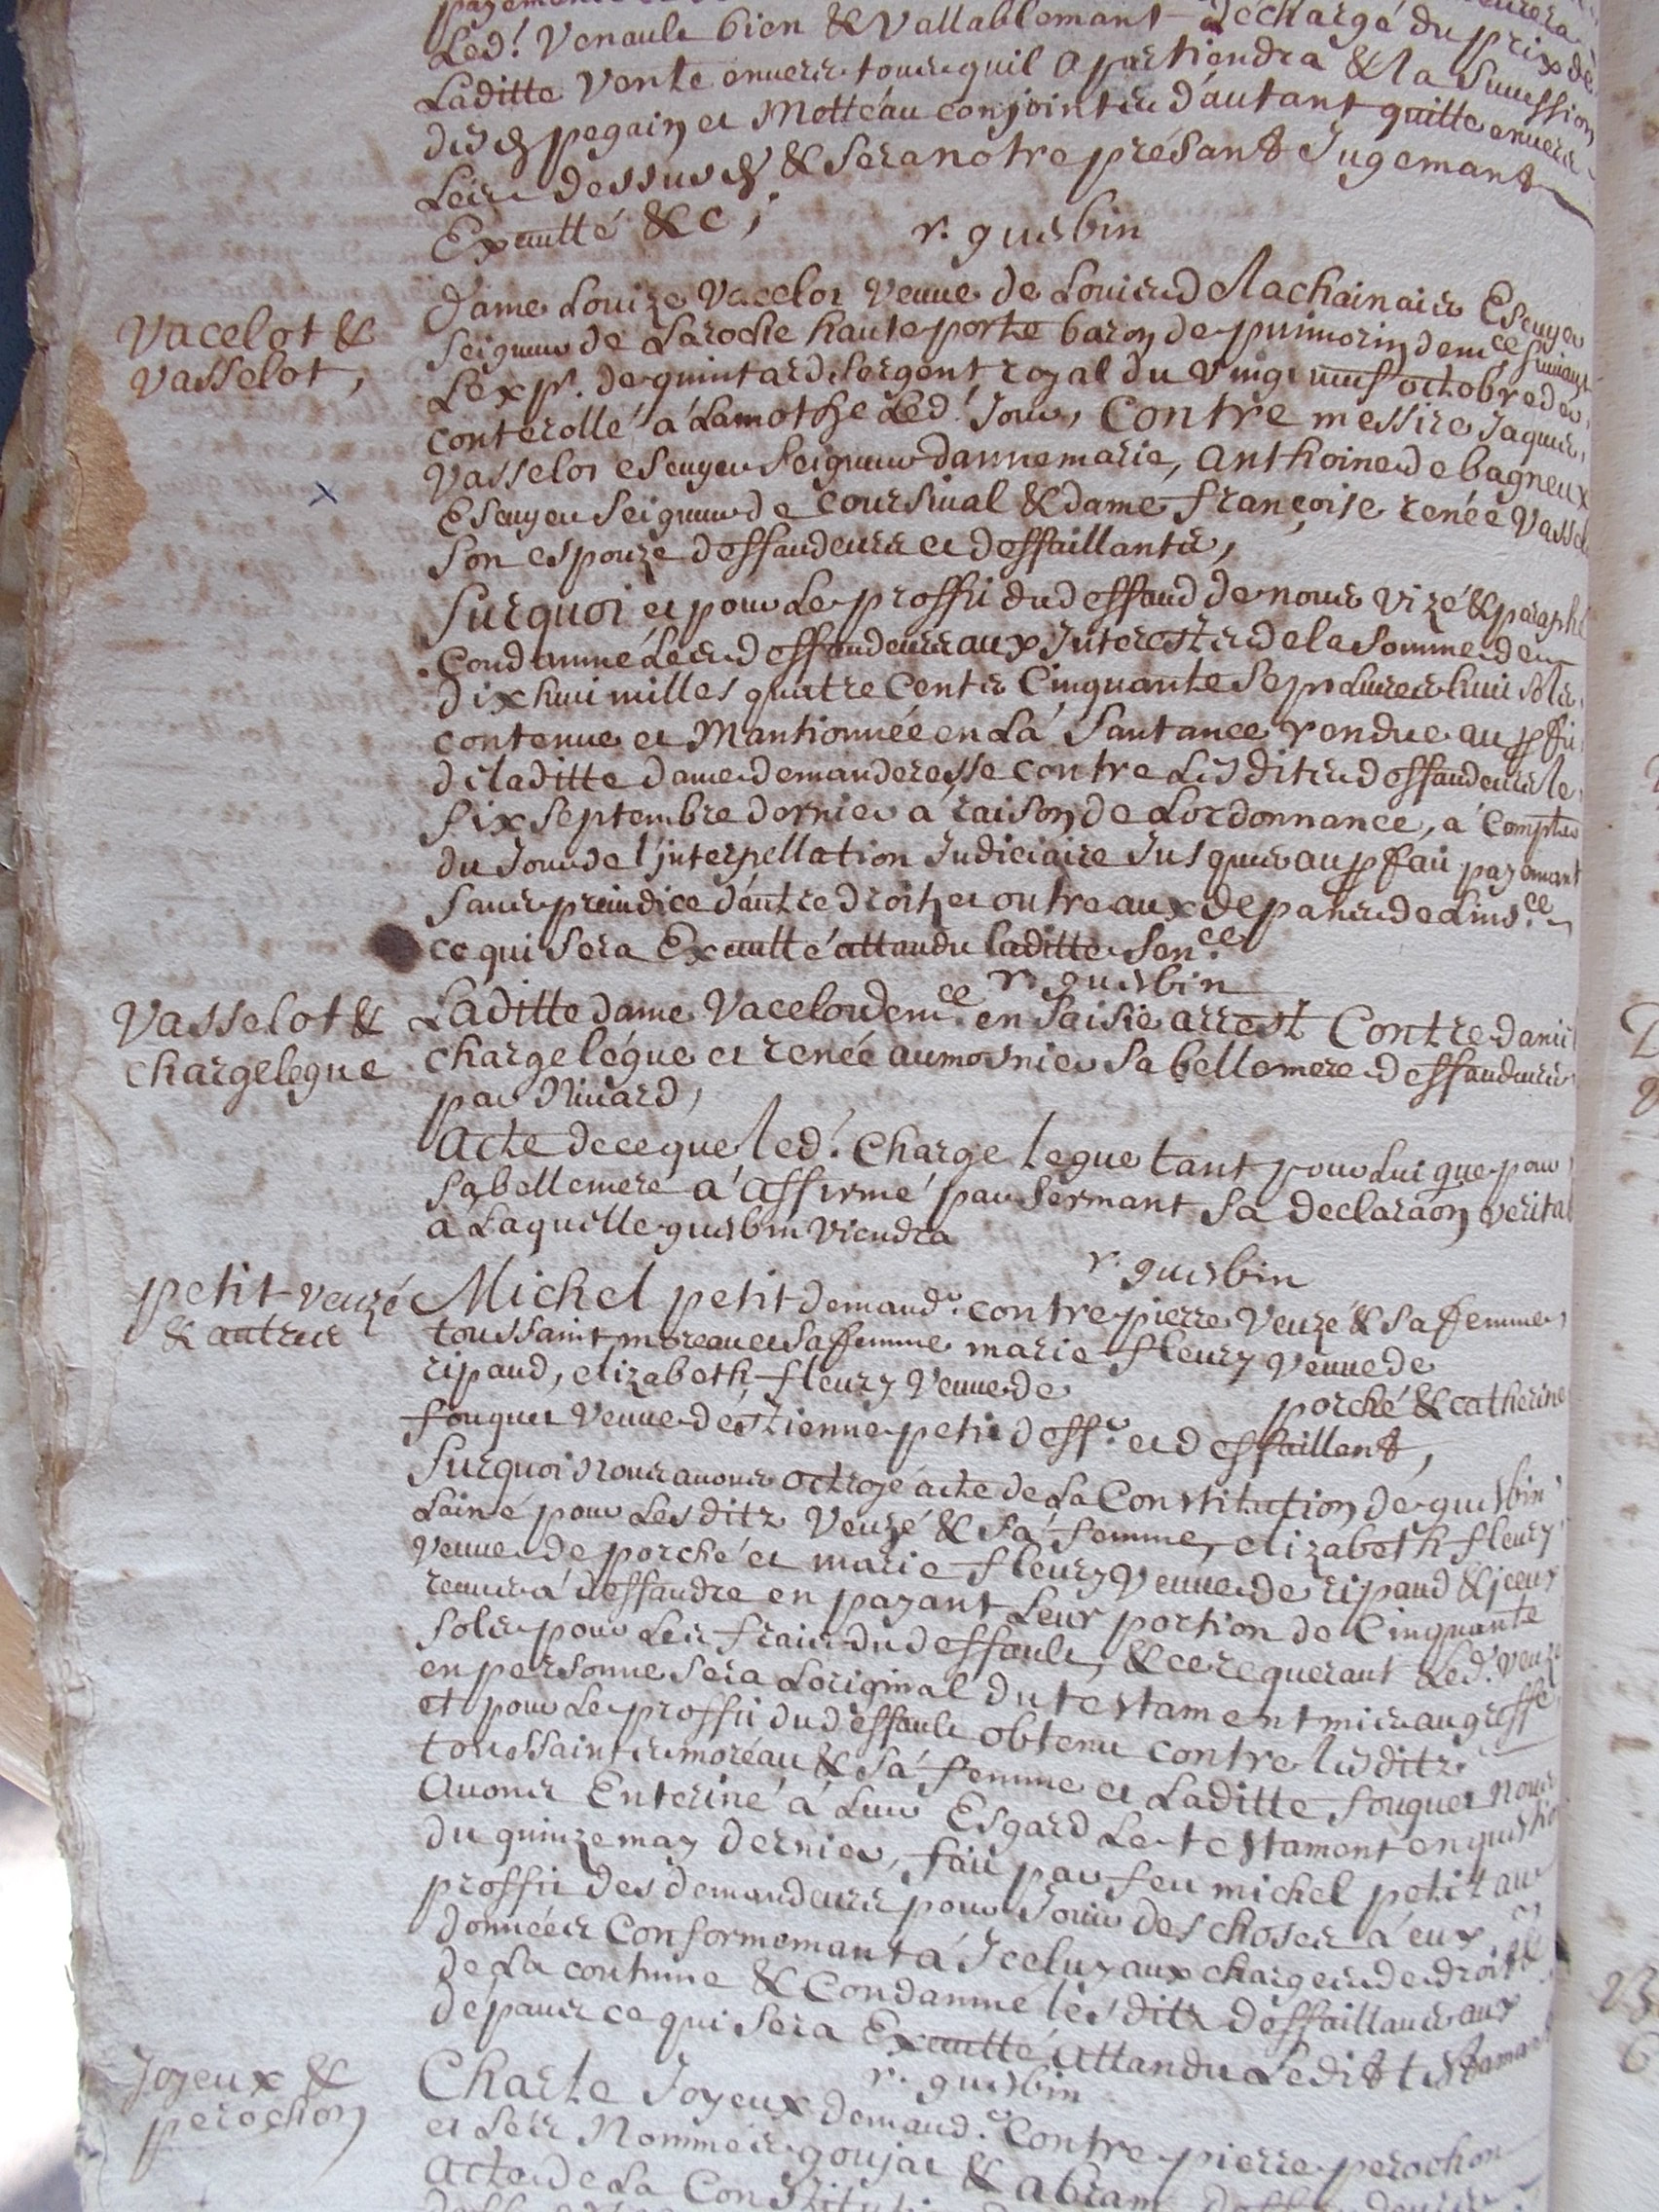 Led.t Venault bien & Vallablemant déchargé du prix de
Laditte Vente enuers tous quil apartiendra & la Sucession
desd pegain et Metteau conjointis d'autant quitte enuers
Leis dessusd & Sera notre présant Jugemant
Exeuttté &c;
r. guisbin
Vacelot &
Vasselot,
Dame Louize Vacelot Veuue de Louis de Lachainais Escuyer
Seigneur de Laroche haute porte baron de puimorin dem.ce suiuant
Lexp.t de quintard Sergent royal du Vingt neuf octobre der
conterollé a Lamothe Led.t Jour, Contre messire Jaques
Vasselot escuyer Seigneur dannemarie, anthoine de bagneux
Escuyer Seigneur de Coursiual & dame françoise renée Vassel
Son espouze deffandeurs et deffaillants,
Surquoi et pour Le proffit dud deffaud de nous vizé & paraphé
Condamné Les deffandeurs aux Interests de la Somme de
dix huit milles quatre Cents Cinquante Sept Liures huit Sols
contenue et Mantionnée en La Santance rendue au proffit
de laditte dame demanderesse contre Lesdits deffandeurs le
Six Septembre dernier a raison de Lordonnance, a Compter
du Jour de l'jnterpellation Judiciaire Jusques au parfait payemant
Sans preiudice d'autre droit et outre aux depans de Lins.ce
ce qui Sera Exeuttté attandu laditte Sen.ce
r. guisbin
Vasselot &
chargelegue
Laditte dame Vacelot dem.ce en Saisie arrest Contre daniel
chargelégue et renée aumosnier Sa bellemere deffandeurs
par Niuard,
Acte de ceque led.t Charge legue tant pour Lui que pour
Sa bellemere a affirmé par Sermant Sa declaraon verital
a Laquelle guisbin viendra
r. guisbin
petit Veuzé
& autres
Michel petit demand.r contre pierre Veuzé & Sa femme,
toussaint moreau et Sa femme marie fleury Veuue de
ripaud, elizabeth fleury Veuue de porché & catherine
fouquet Veuue d'estienne petit deff.r et deffaillant,
Surquoi Nous auons octroyé acte de La Constitution de guisbin
Lainé pour Lesditz Veuzé & Sa femme, elizabeth fleury
Veuue de porché et marie fleury Veuue de ripaud & jceux
receus a deffandre en payant Leur portion de Cinquante
Sols pour Les frais du deffault, & ce requerant Led.t Veuzé
en personne Sera Loriginal du testament mis au greffe
et pour Le proffit du deffault obtenu contre lesditz
toussaints moréau & Sa femme et Laditte fouquet Nous
Auons Enteriné a Leur Esgard Le testament en question
du quinze may dernier, fait par feu michel petit au
proffit des demandeurs pour Jouir des choses a eux
données Conformemant a Jceluy aux charges de droit &
de La coutume & Condamné lesditz deffaillans aux
depans ce qui Sera Exeuttté attandu Ledit testamant
r. guisbin
Joyeux &
perochon
Charle Joyeux demand.r Contre pierre perochon
et Les Nommés goujat & abram
Acte de La Constitution